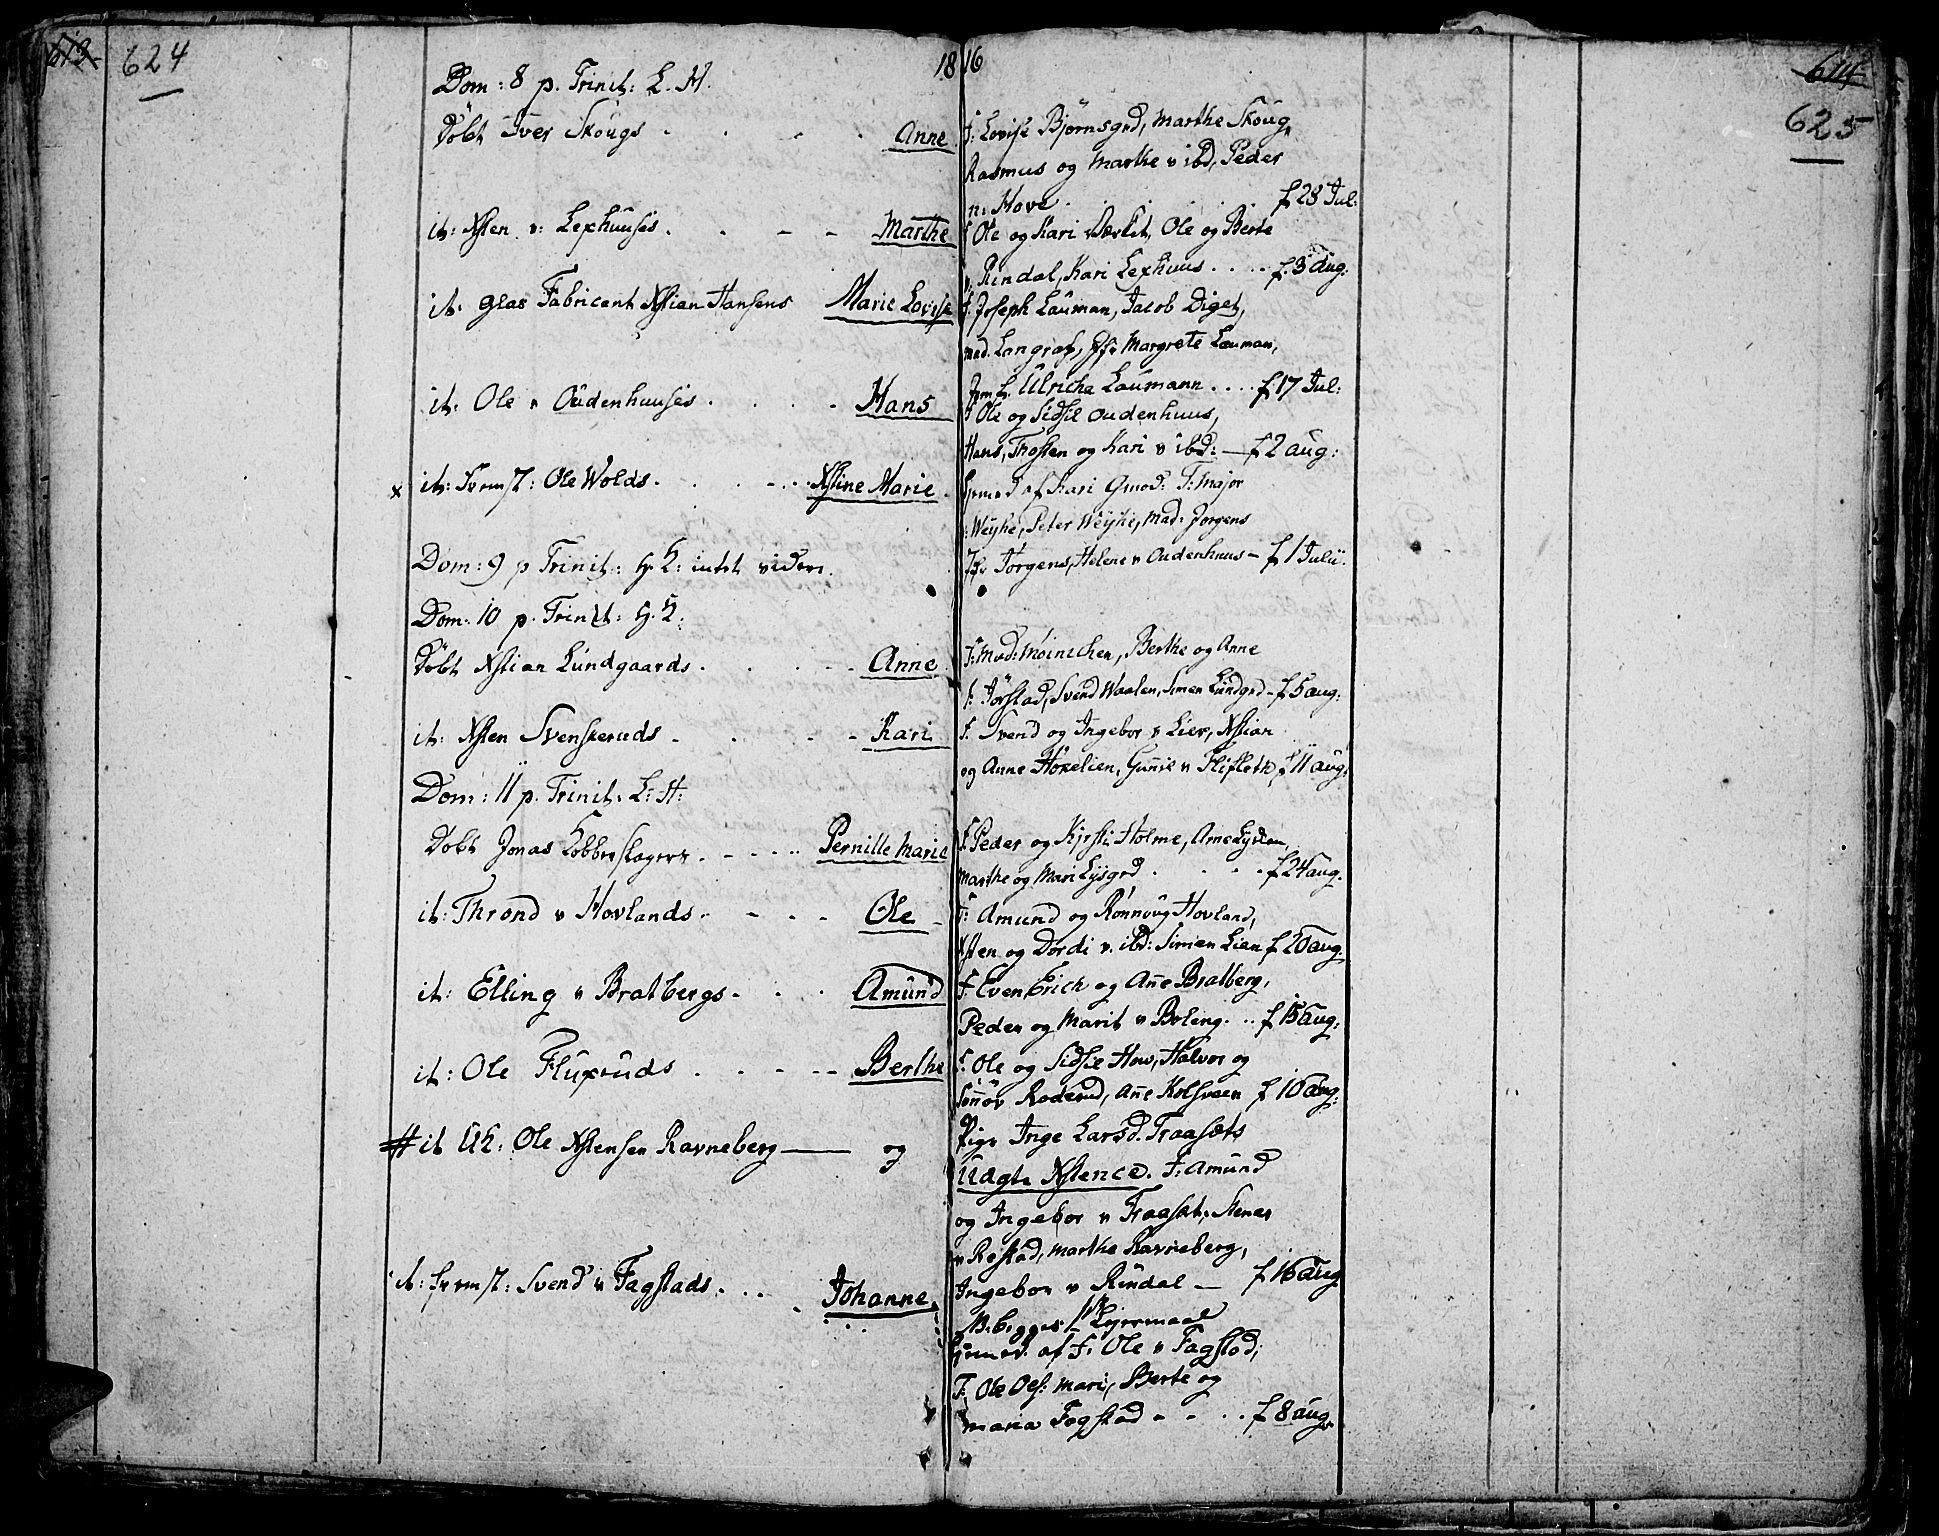 613
624
1816
614
625
Dom: 8 p. Trinit: L. H.
Döbt Iver Skougs Anne
F: Lovise Bjørnsgrd, Marthe Skoug
Rasmus og Marthe v ibd, Peder
n: Hove f 28 Jul:
it: Xsten v: Lexhuuses Marthe
F Ole og Kari Værket, Ole og Berte
v. Rindal, Kari Lexhuus f. 3 aug:
it: Glas Fabricent Xstian Hansens Marie Lovise
F. Joseph Lauman, Jacob Diget,
mad. Langraf, Margrete Lauman,
Ulricha Laumann f 17 Jul:
it: Ole v Oudenhuuses Hans
F Ole og Sidsil Oudenhuus,
Hans, Trosten og Kari v ibd: f 2 aug:
x it: Ole Wolds Xstine Marie
af Kari Gmod: F: Major
Weyhe, Peter Weyhe, Mad: Jorgens
Jfr Jorgens, Helene v Oudenhuus f 1 Julii.
Dom: 9 p Trinit: G. K: intet videre.
Dom: 10 p. Trinit: G. K:
Döbt Xstian Lundgaards Anne
F: Mad: Møinichen, Berthe og Anne
Jørstad, Svend Waalen, Simen Lundgrd f 5 aug:
it: Xsten Svenskeruds Kari
F. Svend og Ingebor v Lier, Xstian
og Anne Høxelien, Gunil v Flifleth f 11 aug:
Dom: 11 p. Trinit: L: H:
Döbt Jonas Kobberslagers Pernille Marie
F. Peder og Kjersti Holme, Arne
Marthe og Mari Lysgrd f 24 aug.
it: Thrond v Hovlands Ole
F: Amund og Rönnoug Hovland,
Xsten og Dordi v. ibd: Simen Lien f 20 aug.
it: Elling v Bratbergs Amund
F Even Erich og Ane Bratberg,
Peder og Marit v Boleng f 15 aug:
it: Ole Fluxruds Berthe
F. Ole og Sidsil How, Halvor og
Sönov Roderud, Ane Kolsveen f 10 aug:
# it Uk: Ole Xstensen Ravneberg og
Pige Inge Larsd. Traasets
Uægte Xstence. F: Amund
og Ingebor v Traaset, Stener
v Rostad, Marthe Ravneberg,
Ingebor v Rindal f 16 aug
B. begges 1ste Leyermaal
it: Svend v Fagstads Johanne
af F: Ole v Fagstad;
F: Ole Oels: Mari, Berte og
Maria Fagstad f 8 aug